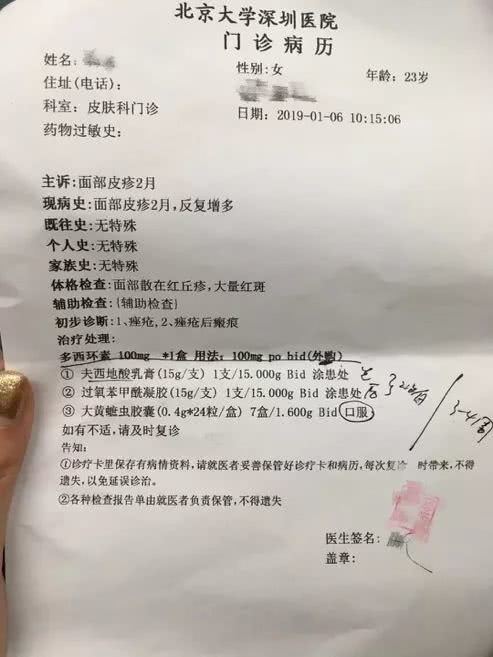 北京大学深圳医院
门诊病历
姓名:
性别:女
年龄:23岁
住址(电话):
科室:皮肤科门诊
日期:2019-01-06 10:15:06
药物过敏史:
主诉:面部皮疹2月
现病史:面部皮疹2月,反复增多
既往史:无特殊
个人史:无特殊
家族史:无特殊
体格检查:面部散在红丘疹,大量红斑
辅助检查:{辅助检查}
初步诊断:1、痤疮,2、痤疮后瘢痕
治疗处理:
多西环素 100mg *1盒 用法:100mg po bid(外购)
① 夫西地酸乳膏(15g/支) 1支/15.000g Bid 涂患处
② 过氧苯甲酰凝胶(15g/支) 1支/15.000g Bid 涂患处
③ 大黄蛰虫胶囊(0.4g*24粒/盒) 7盒/1.600g Bid 口服
3-4周
如有不适,请及时复诊
告知:
①诊疗卡里保存有病情资料,请就医者妥善保管好诊疗卡和病历,每次复诊 时带来,不得
遗失,以免延误诊治。
②各种检查报告单由就医者负责保管,不得遗失
医生签名:
盖章: